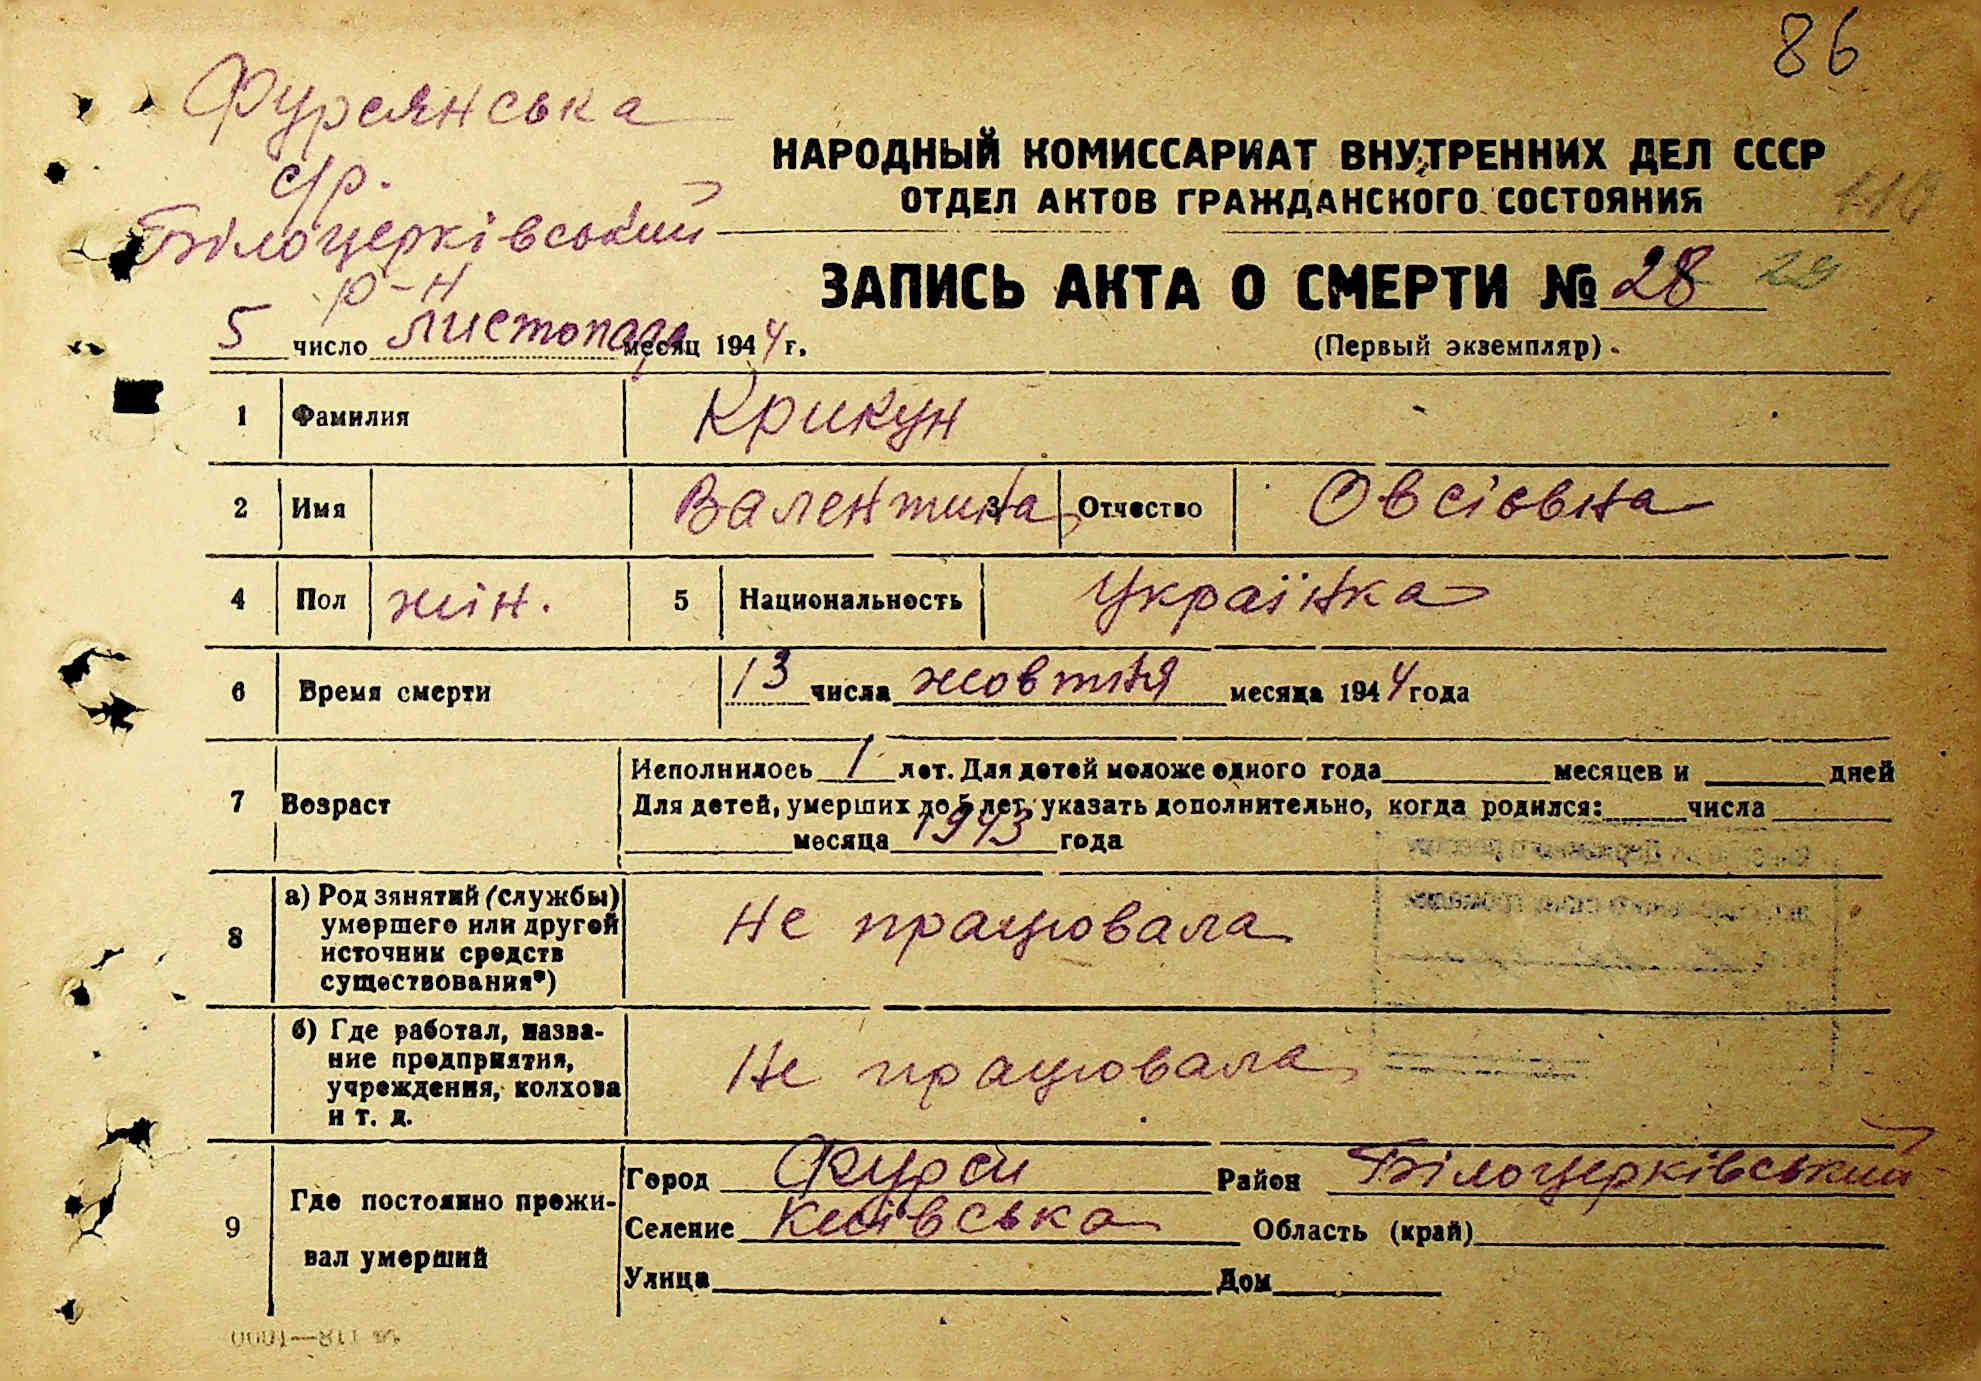 86
Фурсянська
с/р.
Білоцерківський
р-н
НАРОДНЫЙ КОМИССАРИАТ ВНУТРЕННИХ ДЕЛ СССР
ОТДЕЛ АКТОВ ГРАЖДАНСКОГО СОСТОЯНИЯ
ЗАПИСЬ АКТА О СМЕРТИ № 28 29
5 число листопада месяц 1944 г.
(Первый экземпляр).
1 Фамилия Крикун
2 Имя Валентина 3 Отчество Овсіовна
4 Пол жін. 5 Национальность Українка
6 Время смерти 13 числа жовтня месяца 1944 года
7 Возраст
Исполнилось 1 лет. Для детей моложе одного года месяцев и дней
Для детей, умерших до 5 лет, указать дополнительно, когда родился: числа
месяца 1943 года
8 а) Род зянятий (службы)
умершего или другой
источник средств
существования*)
Не працювала
б) Где работал, назва-
ние предприятия,
учреждения, колхоза
и т. д.
Не працювала
9 Где постоянно прожи-
вал умерший
Город Фурси Район Білоцерківський
Селение Київська Область (край)
Улица Дом